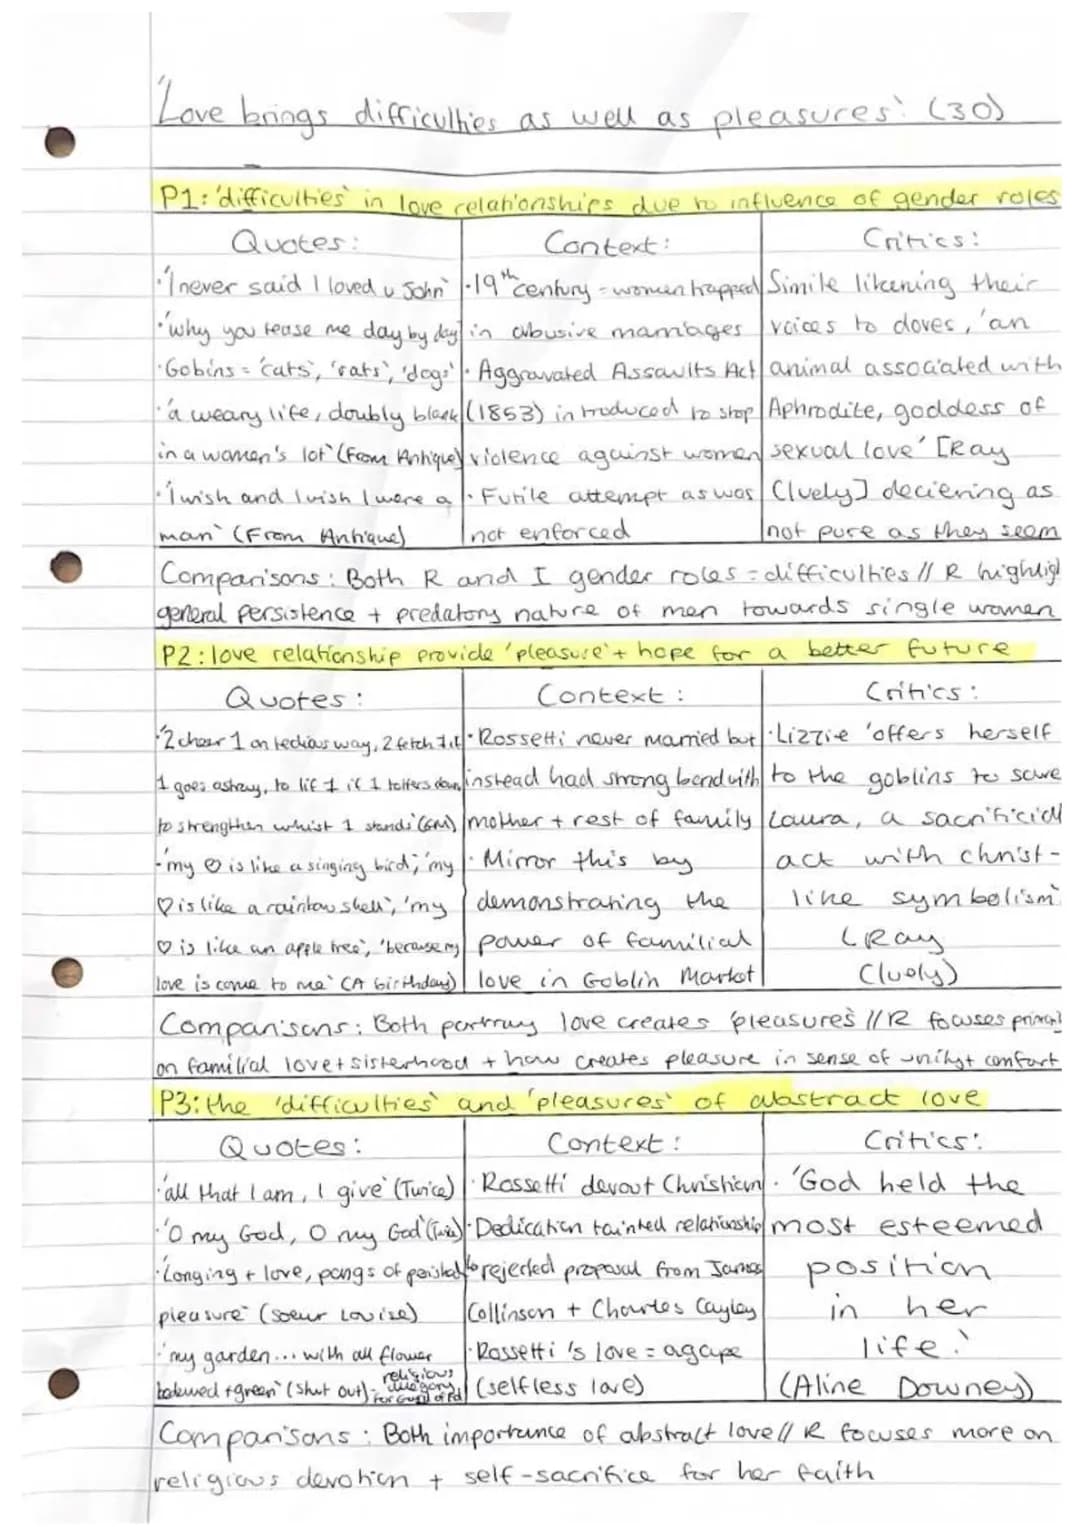 'Love brings difficulties as well as pleasures' (30)
P1: 'difficulties' in love relationships due to influence of gender roles
Quotes:
Context:
Critics:
·'I never said I loved u John'
·'why you tease me day by day'
·Gobins = 'cats', 'rats', 'dogs'
·'a weary life, doubly blank
in a women's lot' (From Antique)
·'I wish and I wish I were a
man' (From Antique)
·19th century = women trapped
in abusive marriages
· Aggravated Assaults Act
(1853) introduced to stop
violence against women
· Futile attempt as was
not enforced
Simile likening their
voices to doves, 'an
animal associated with
Aphrodite, goddess of
sexual love' [Ray
Cluely] deciering as
not pure as they seem
Comparisons: Both R and I gender roles = difficulties // R highligh
general persistence + predatory nature of men towards single women
P2: love relationship provide 'pleasure' + hope for a better future
Quotes:
Context:
Critics:
·'2 cheer 1 on tedious way, 2 fetch 1 if
1 goes astray, to lif 1 if 1 totters down,
to strengthen whilst 1 stands' (GM)
·'my ♡ is like a singing bird', 'my
♡ is like a rainbow shell', 'my
♡ is like an apple tree', 'because my
love is come to me' (A birthday)
· Rossetti never married but
instead had strong bond with
mother + rest of family
· Mirror this by
demonstrating the
power of familial
love in Goblin Market
·Lizzie 'offers herself
to the goblins to save
Laura, a sacrificial
act with christ-
like symbolism'
(Ray
Cluely)
Comparisons: Both portray love creates 'pleasures' // R focuses
on familial love + sisterhood + how creates pleasure in sense of unity + comfort
P3: the 'difficulties' and 'pleasures' of abstract love
Quotes:
Context:
Critics:
·'all that I am, I give' (Twice)
·'O my God, O my God' (Twice)
·'Longing + love, pangs of perished
pleasure' (soeur Louise)
·'my garden... with all flower
bedewed + green' (shut out) = religious allegory for Gard of Ed
· Rossetti devout Christian
· Dedication tainted relationship
to rejected proposal from James
Collinson + Charles Cayley
· Rossetti's love = agape
(selfless love)
· 'God held the
most esteemed
position
in her
life.'
(Aline Downey)
Comparisons: Both importance of abstract love // R focuses more on
religious devotion + self-sacrifice for her faith